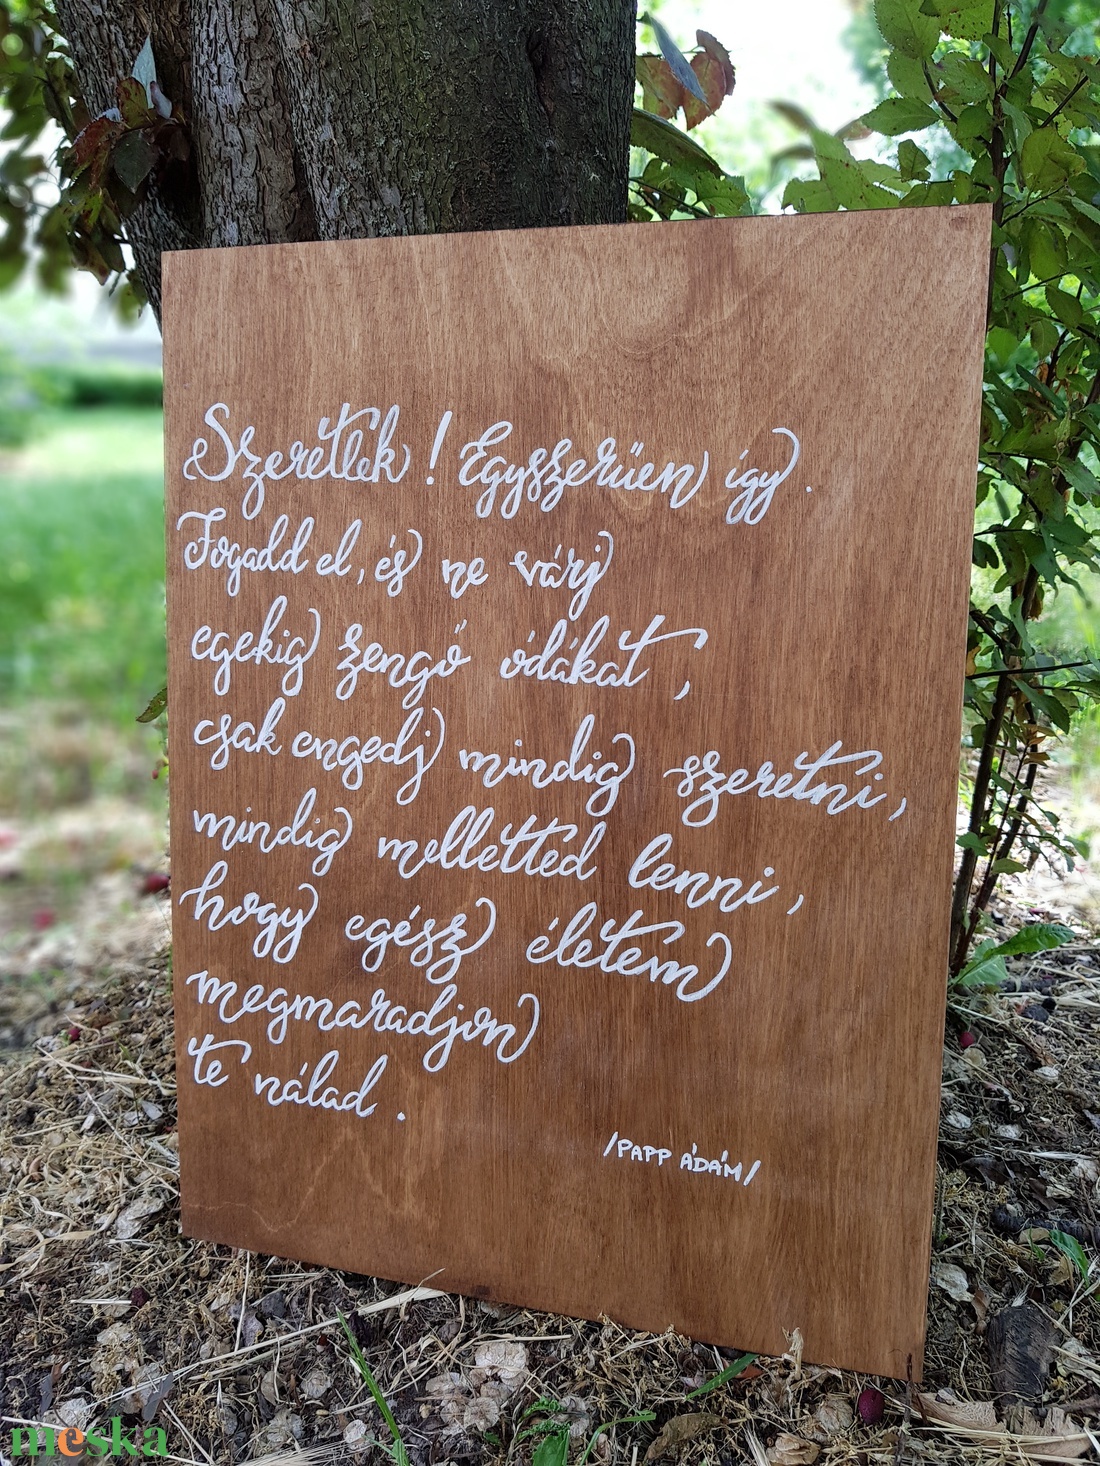 Szeretlek! Egyszerűen így.
Fogadd el, és ne várj
egekig zengő ódákat,
csak engedj mindig szeretni,
mindig melletted lenni,
hogy egész életem
megmaradjon
te nálad.
/PAPP ÁDÁM/
meska